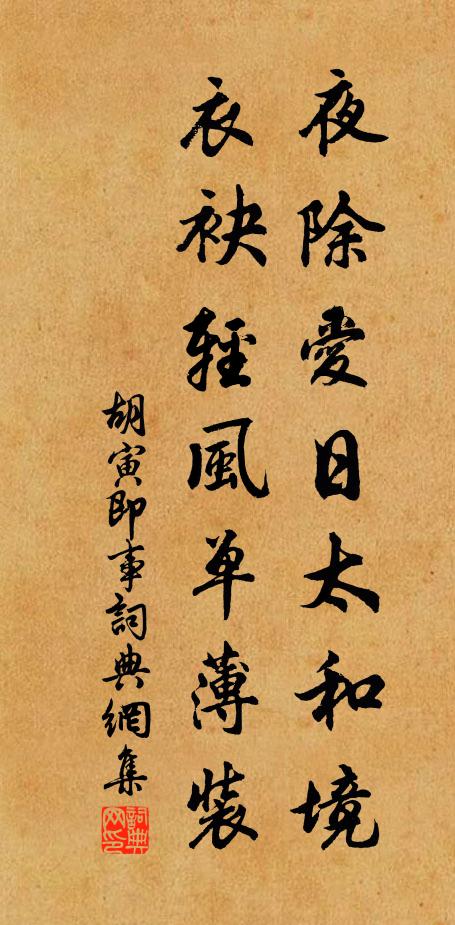 夜除愛日太和境
衣袂輕風单薄裝
胡寅即事詞典網集
詞典網印